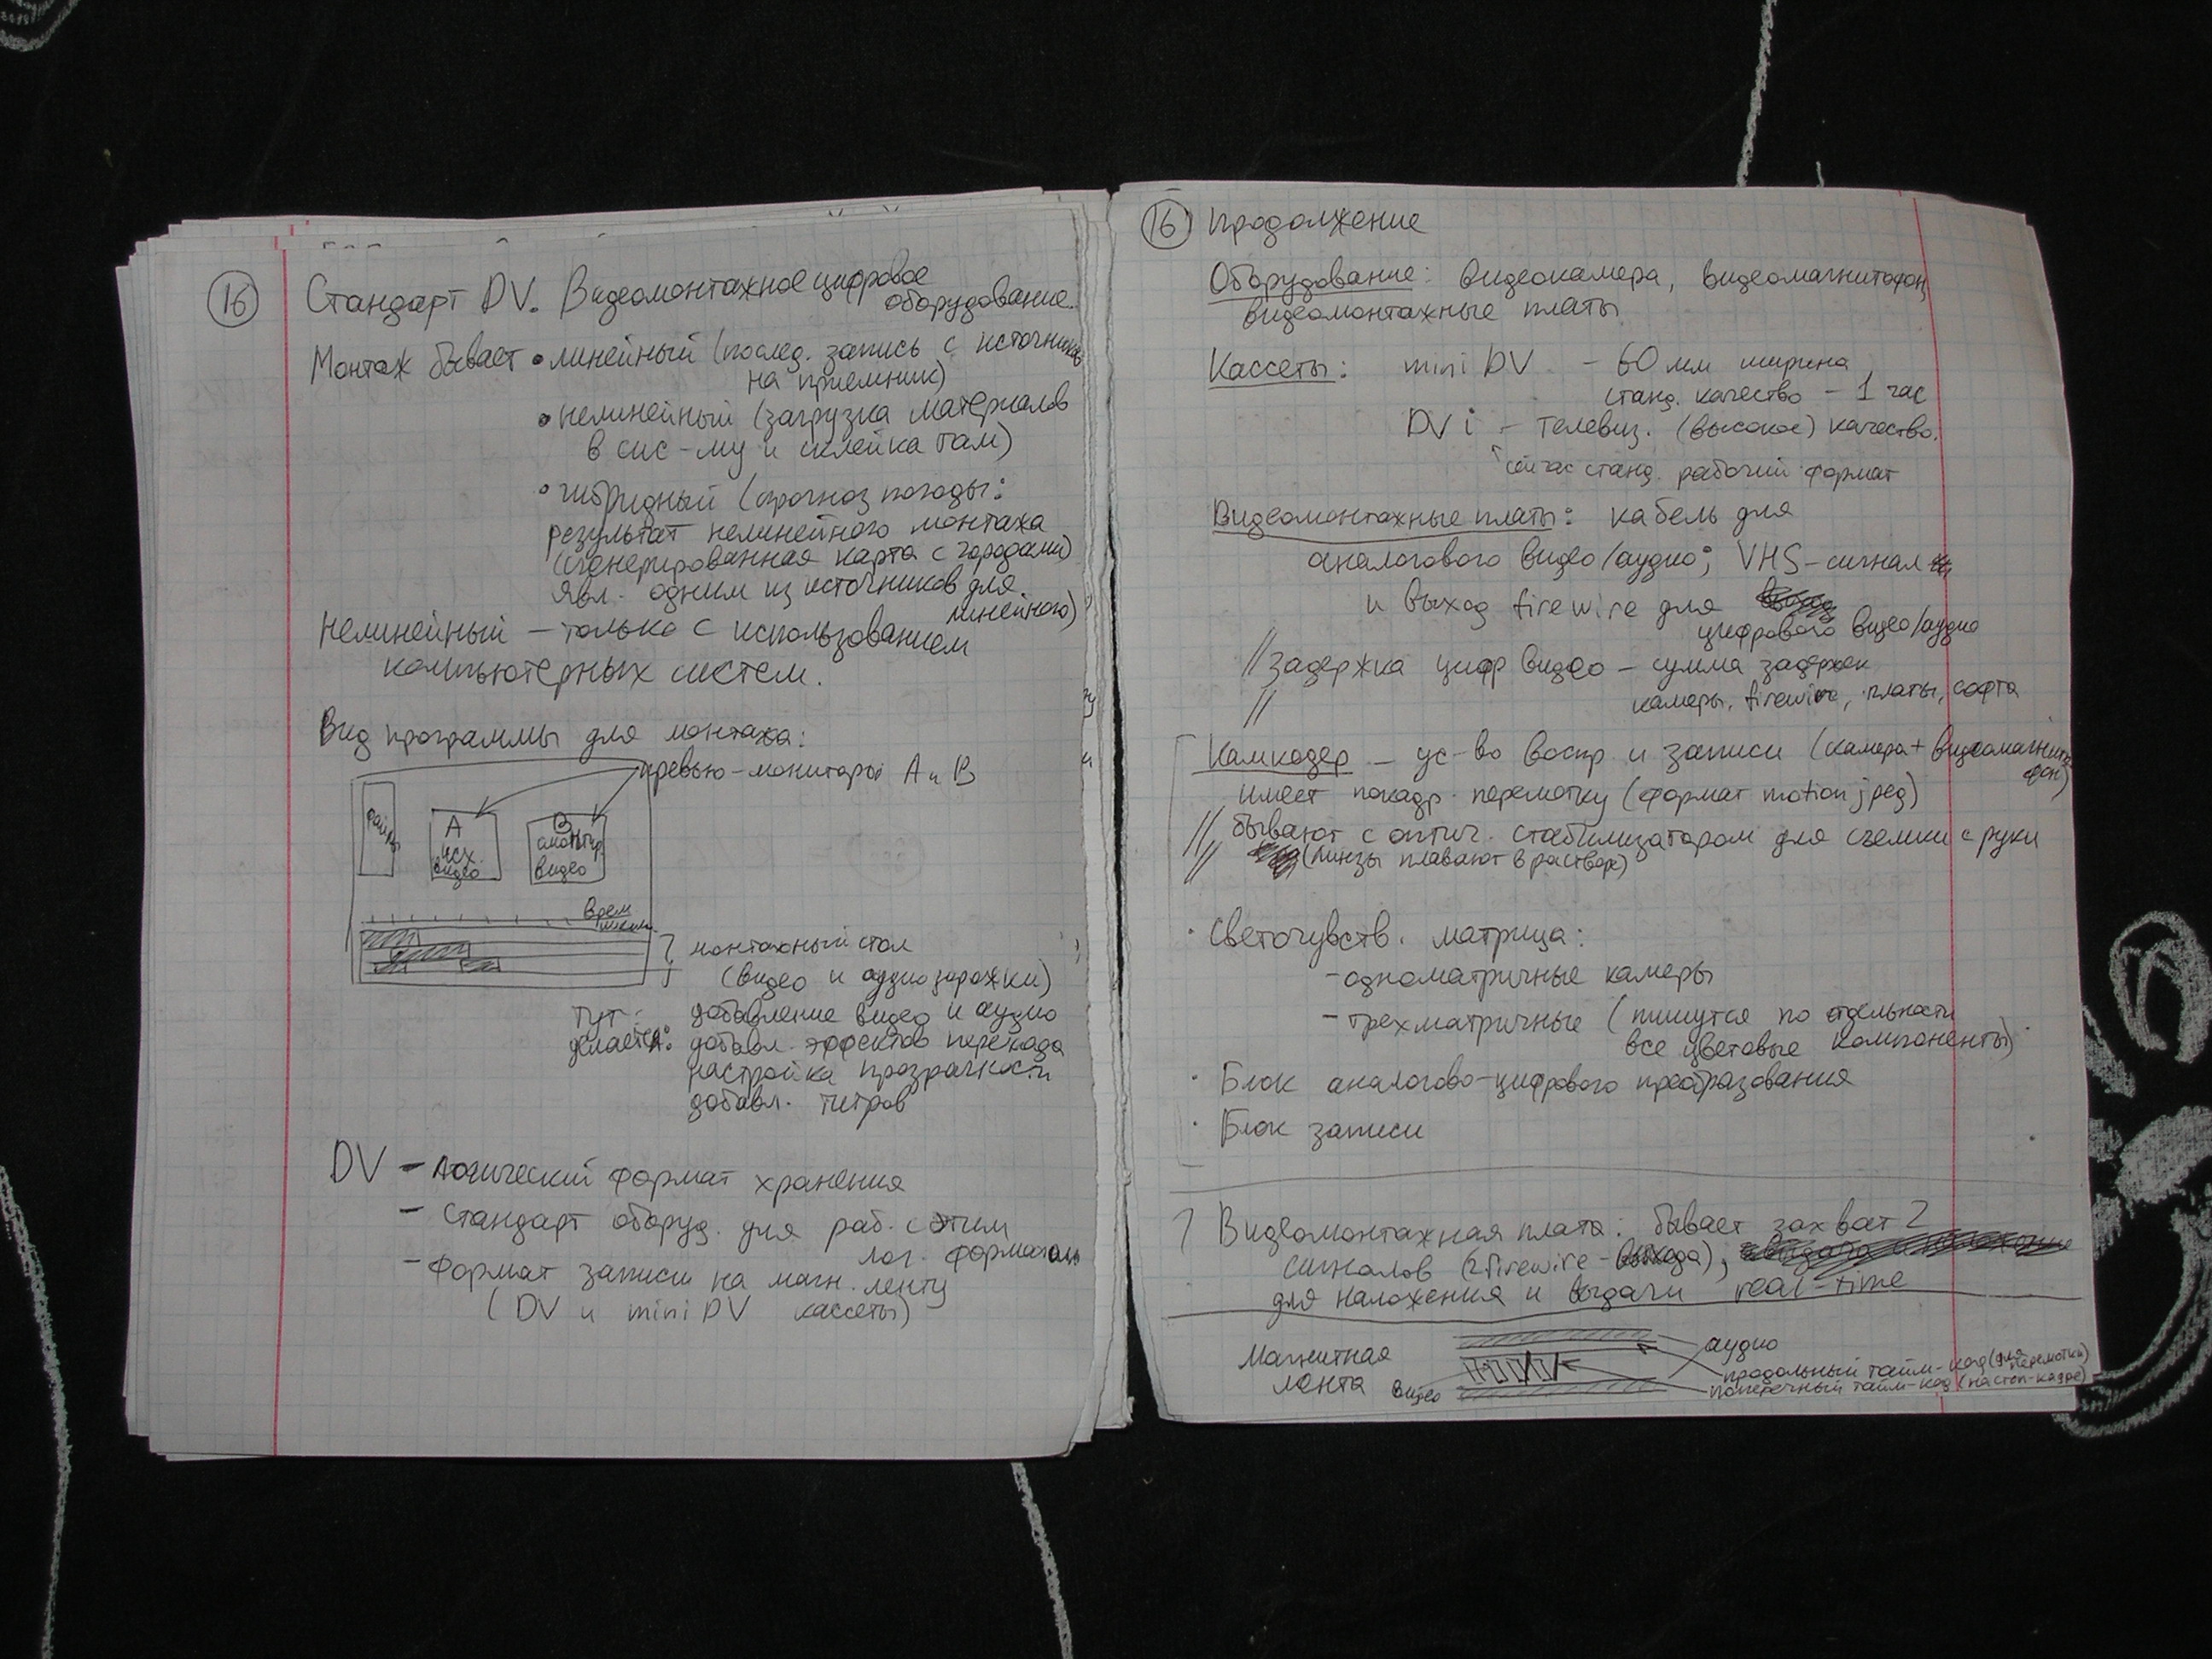 16
Стандарт DV. Видеомонтажное цифровое
оборудование.
Монтаж бывает • линейный (послед. запись с источников
на приемник)
• нелинейный (загрузка материалов
в сис-му и склейка там)
• гибридный (прогноз погоды:
результат нелинейного монтажа
(сгенерированная карта с городами)
явл. одним из источников для
линейного)
Нелинейный – только с использованием
компьютерных систем.
Вид программы для монтажа:
превью-мониторы A и B
файлы
A
исх.
видео
B
смонтир.
видео
врем
шкала
монтажный стол
(видео и аудио дорожки)
тут
делается:
добавление видео и аудио
добавл. эффектов перехода
настройка прозрачности
добавл. титров
DV – логический формат хранения
– стандарт оборуд. для раб. с этим
лог. форматом
– формат записи на магн. ленту
(DV и mini DV кассеты)
16 Продолжение
Оборудование: видеокамера, видеомагнитофон,
видеомонтажные платы
Кассеты: mini DV – 60 мм ширина
станд. качество – 1 час
DVi – телевиз. (высокое) качество.
сейчас станд. рабочий формат
Видеомонтажные платы: кабель для
аналогового видео/аудио; VHS-сигнал
и выход firewire для
цифрового видео/аудио
// задержка цифр видео – сумма задержек
// камеры, firewire, платы, софта
Камкодер – ус-во воспр и записи (камера + видеомагнито
фон)
имеет покадр. перемотку (формат motion jpeg)
// бывают с оптич. стабилизатором для съемки с руки
// (линзы плавают в растворе)
· Светочувств. матрица:
- одноматричные камеры
- трехматричные (пишутся по отдельности
все цветовые компоненты)
· Блок аналогово-цифрового преобразования
· Блок записи
Видеомонтажная плата: бывает захват 2
сигналов (2 firewire-выхода),
для наложения и выдачи real-time
Магнитная
лента
видео
аудио
продольный тайм-код (для перемотки)
поперечный тайм-код (на стоп-кадре)